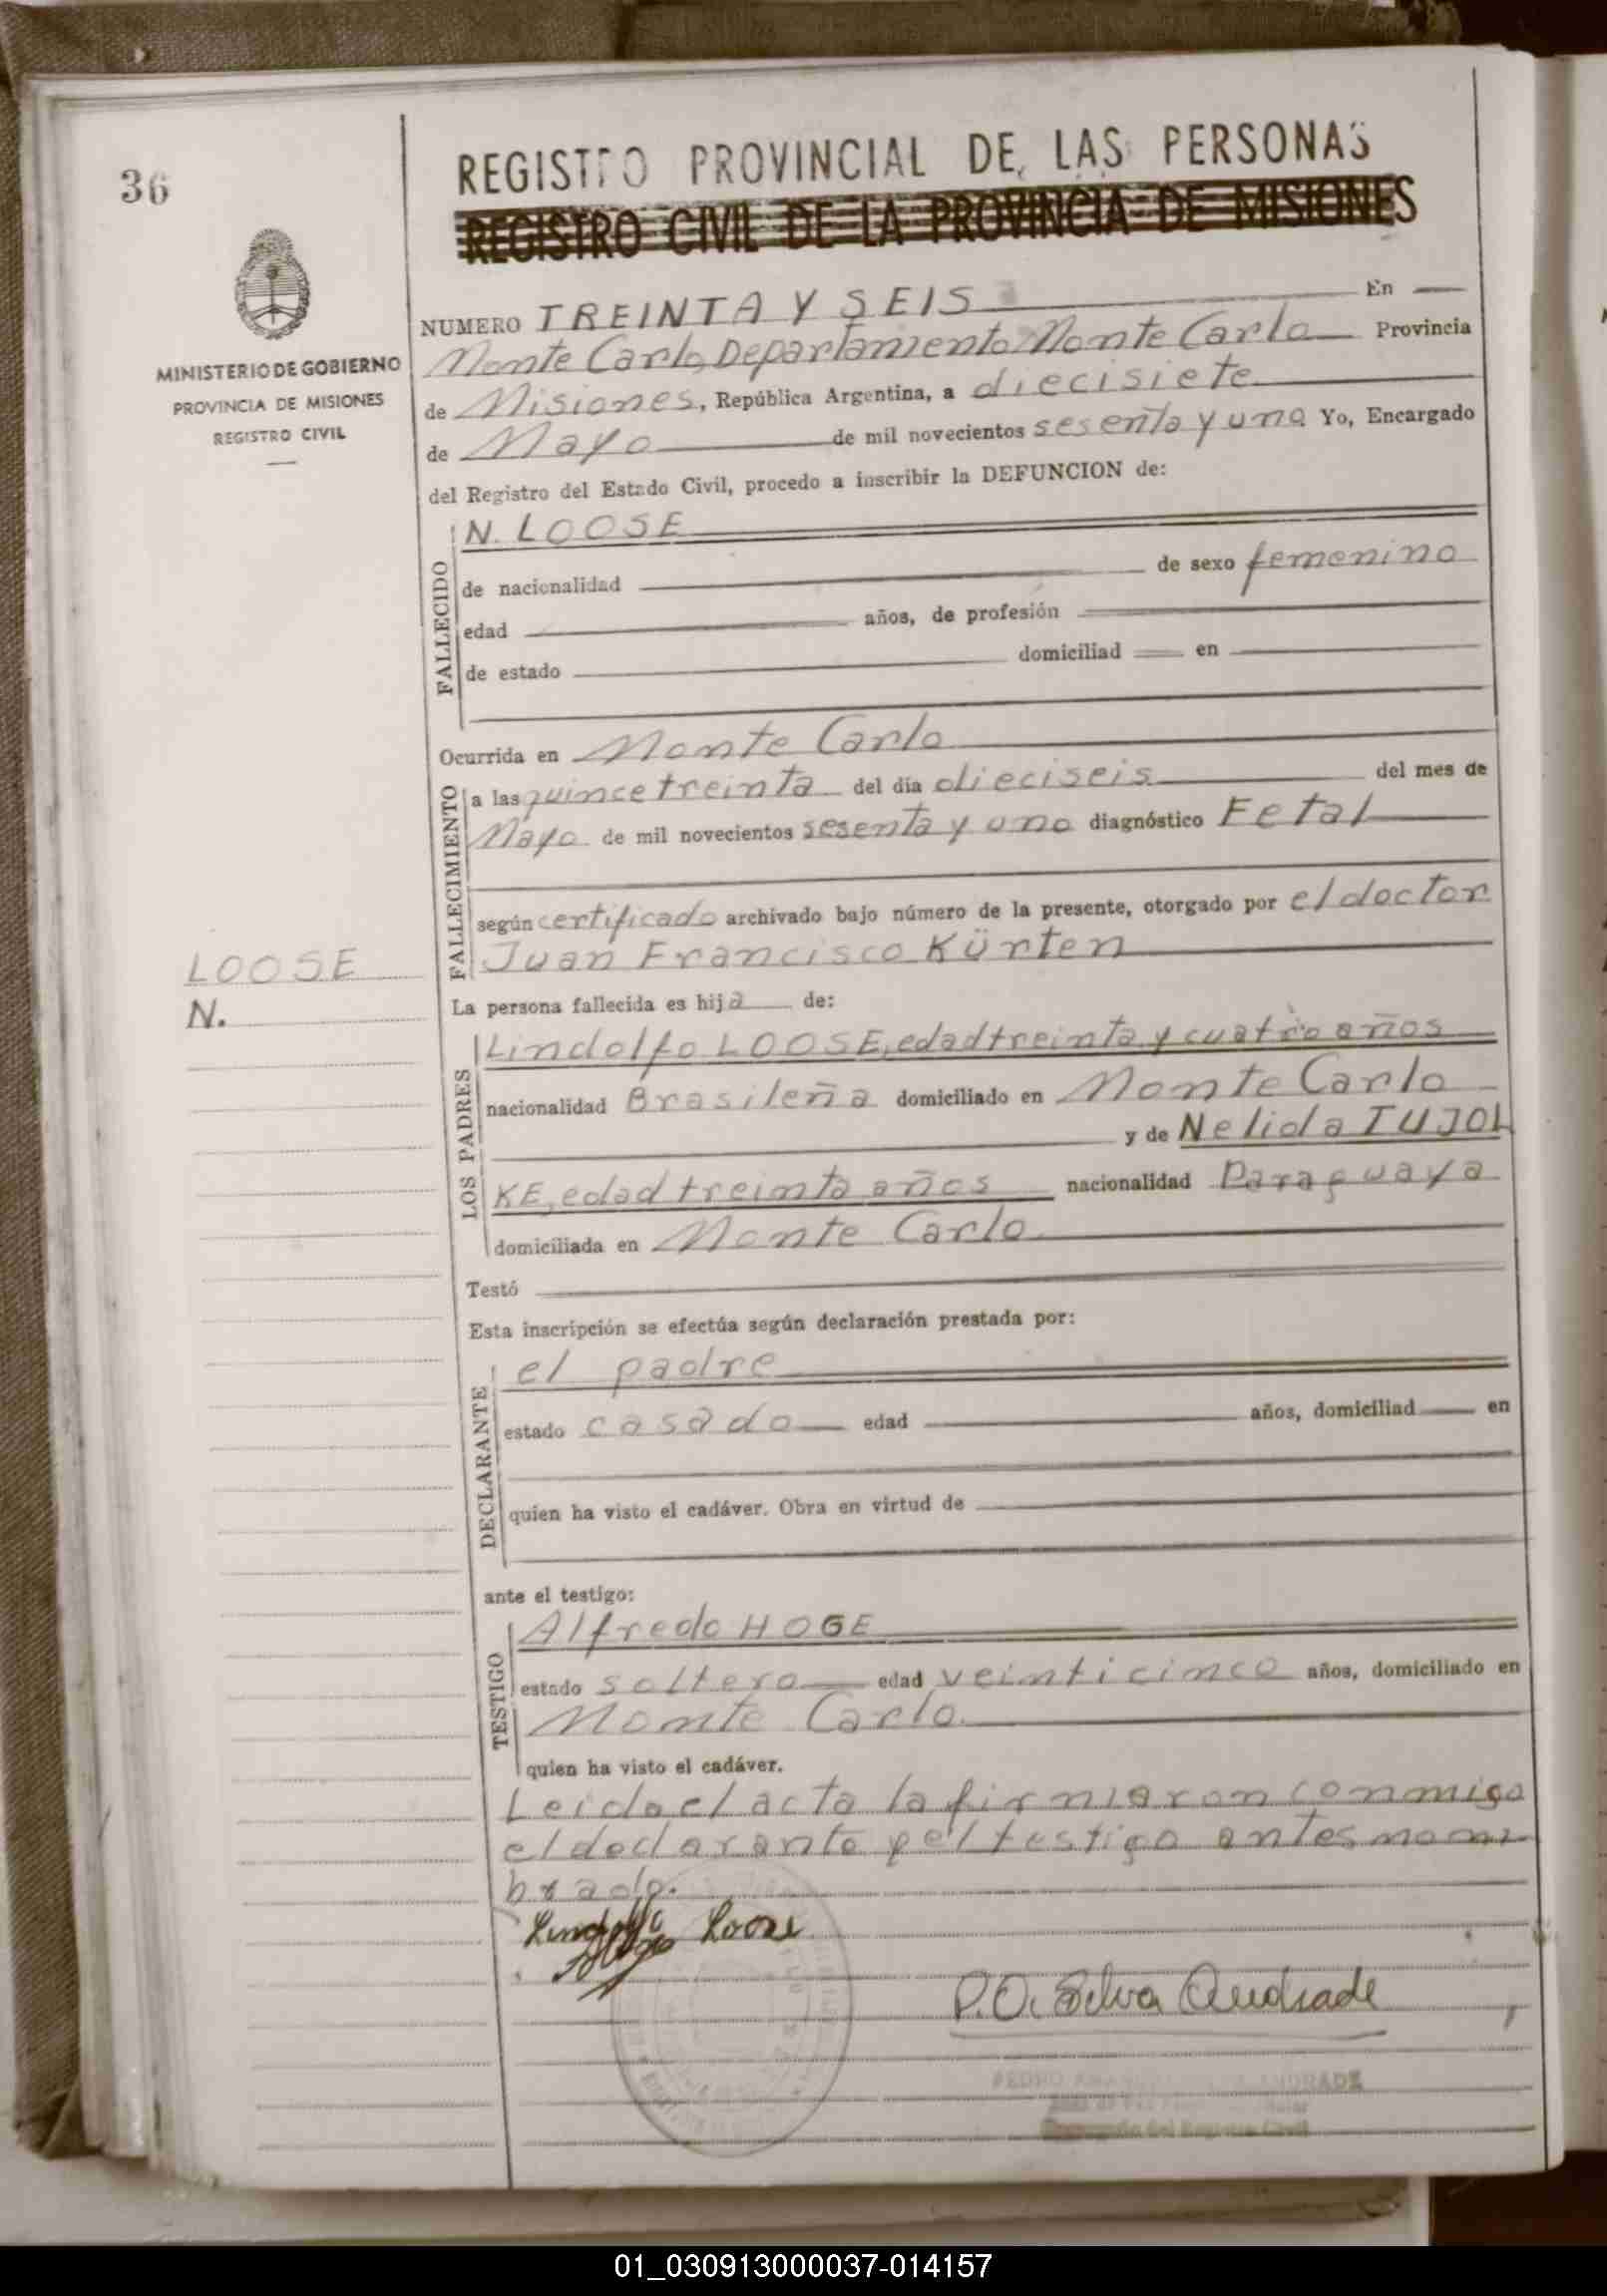 36
REGISTRO PROVINCIAL DE LAS PERSONAS
REGISTRO CIVIL DE LA PROVINCIA DE MISIONES
MINISTERIO DE GOBIERNO
PROVINCIA DE MISIONES
REGISTRO CIVIL
NUMERO TREINTA Y SEIS En
Monte Carlo, Departamento Monte Carlo Provincia
de Misiones, República Argentina, a diecisiete
de Mayo de mil novecientos sesenta y uno Yo, Encargado
del Registro del Estado Civil, procedo a inscribir la DEFUNCION de:
FALLECIDO
N. LOOSE
de nacionalidad de sexo femenino
edad años, de profesión
de estado domiciliad en
Ocurrida en Monte Carlo
FALLECIMIENTO
a las quince treinta del día dieciseis del mes de
Mayo de mil novecientos sesenta y uno diagnóstico Fetal
según certificado archivado bajo número de la presente, otorgado por el doctor
Juan Francisco Kürten
LOOSE
N.
La persona fallecida es hija de:
LOS PADRES
Lindolfo LOOSE, edad treinta y cuatro años
nacionalidad Brasileña domiciliado en Monte Carlo
y de Nelida TUJOL
KE, edad treinta años nacionalidad Paraguaya
domiciliada en Monte Carlo
Testó
Esta inscripción se efectúa según declaración prestada por:
DECLARANTE
el padre
estado casado edad años, domiciliad en
quien ha visto el cadáver. Obra en virtud de
ante el testigo:
TESTIGO
Alfredo HOGE
estado soltero edad veinticinco años, domiciliado en
Monte Carlo.
quien ha visto el cadáver.
Leida el acta la firmaron conmigo
el declarante y el testigo antes nom
brado.
Lindolfo Loose
P.O. Silva Andrade
PEDRO ANDRADE
Encargado del Registro Civil
01_030913000037-014157